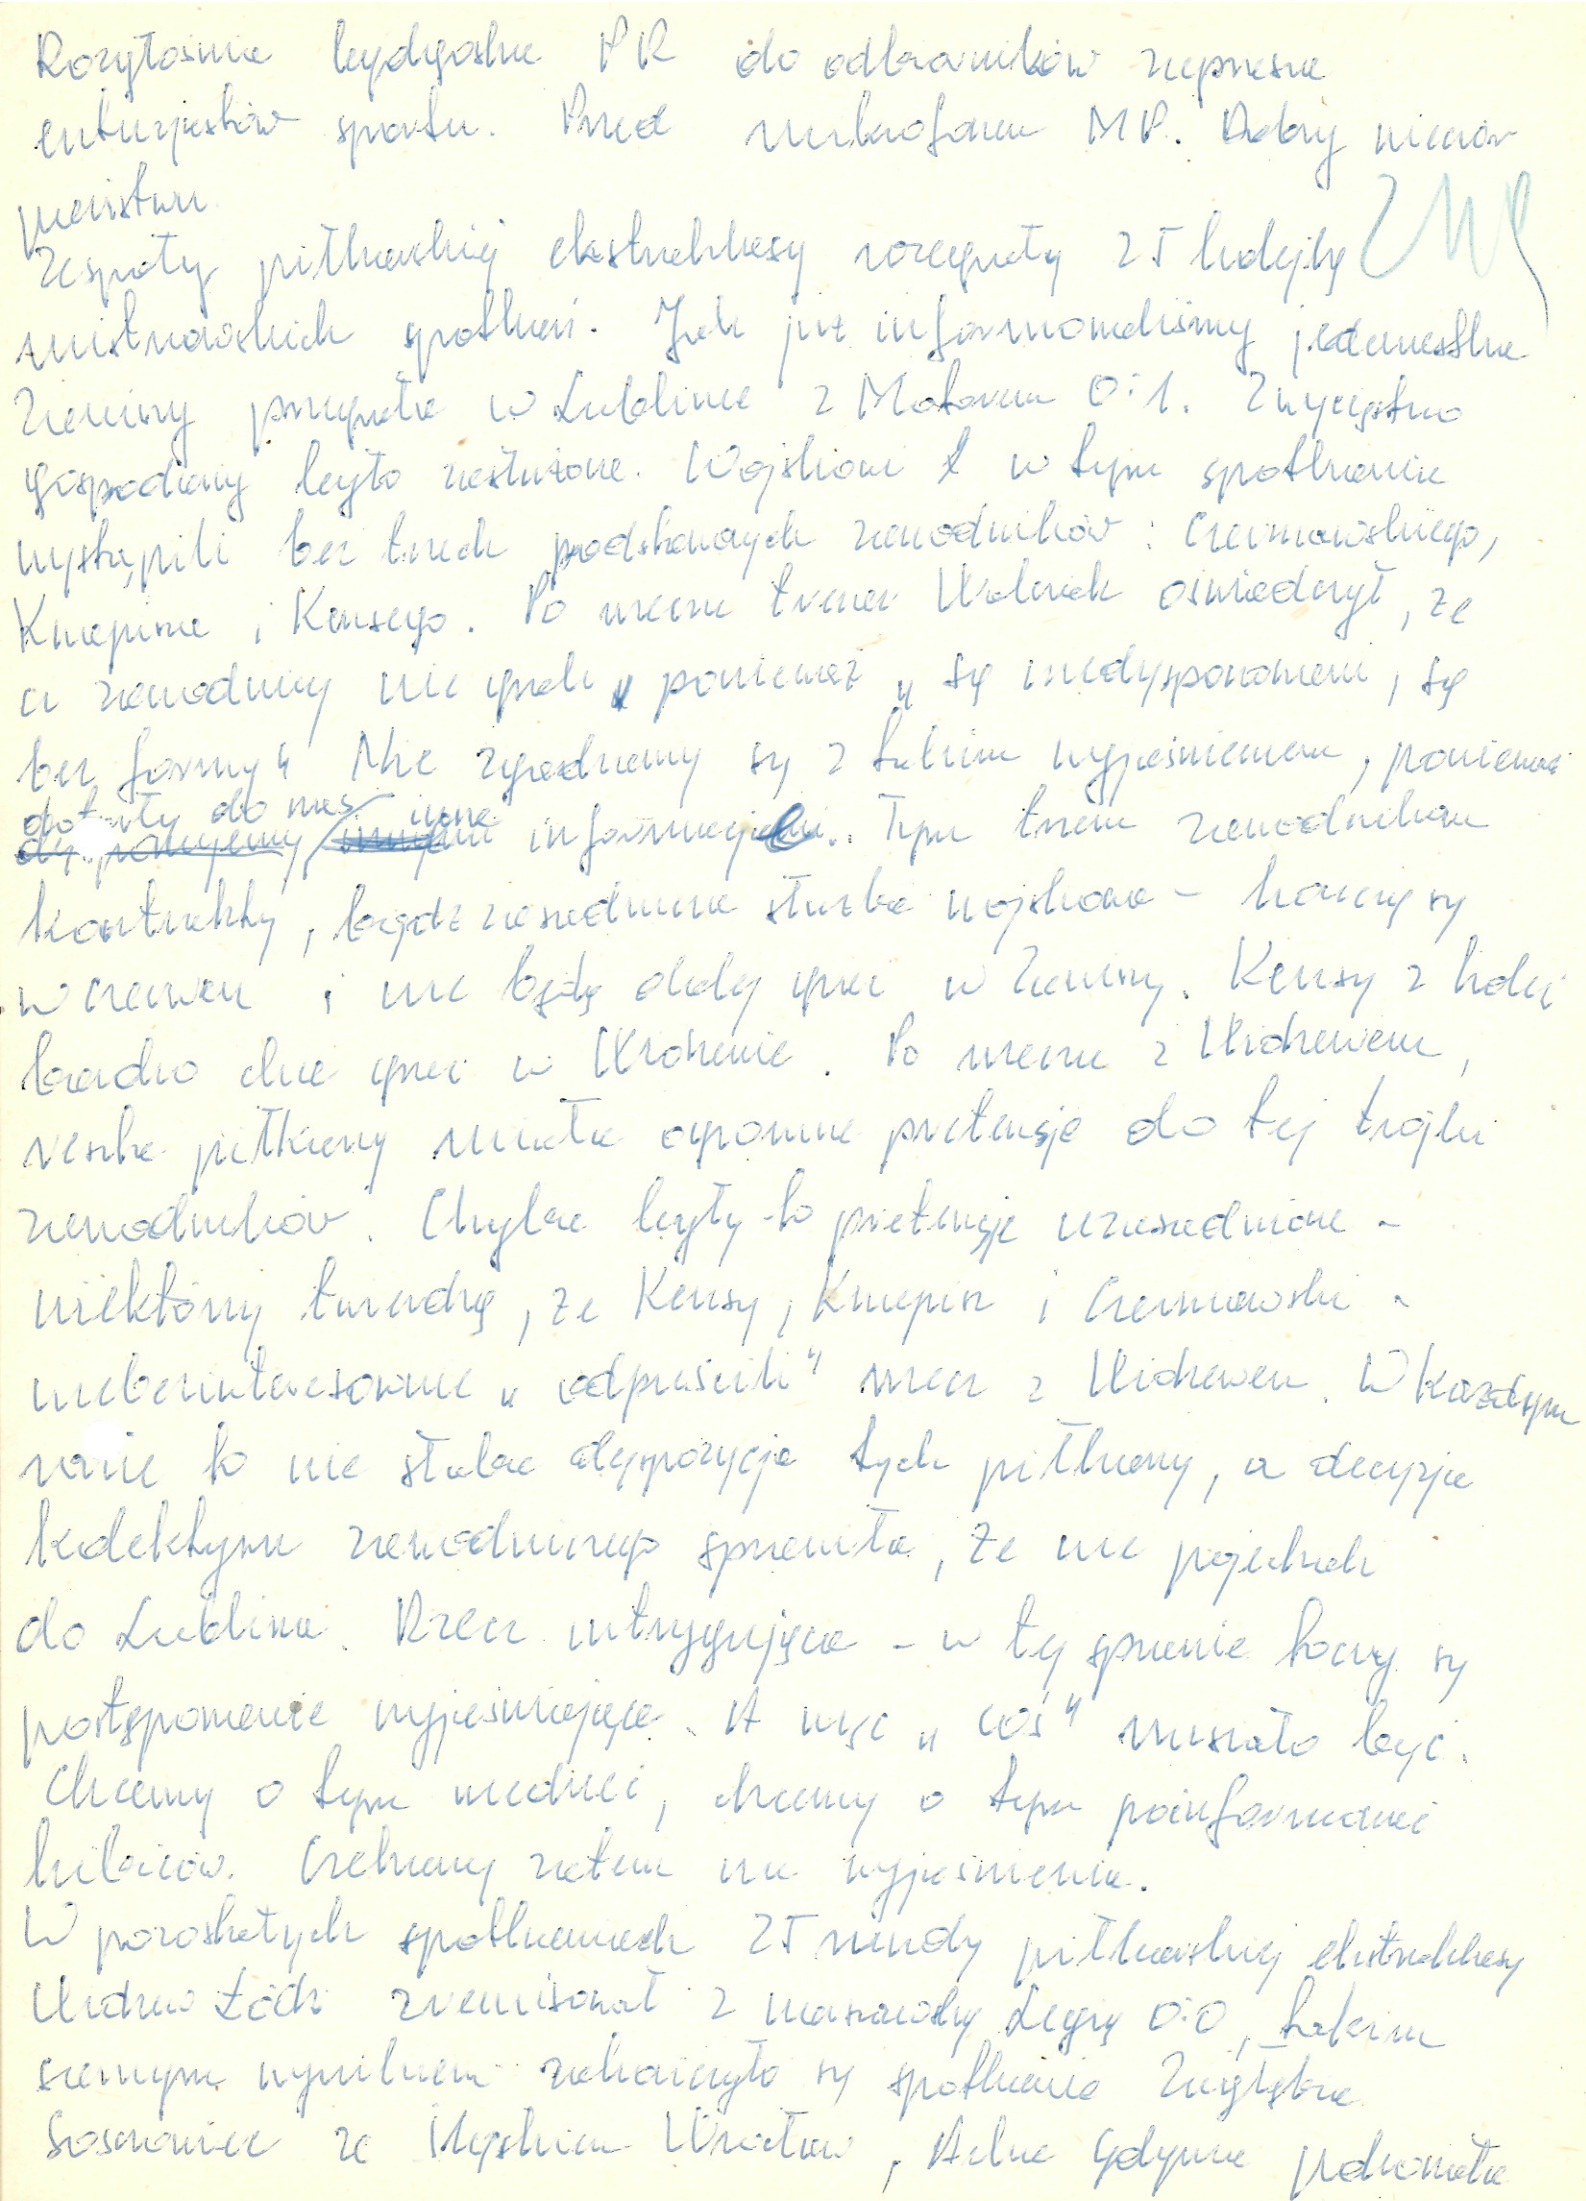 Rozgłośnia bydgoska PR do odbiorników zaprasza
entuzjastów sportu. Przed mikrofonem MP. Dobry wieczór
państwu.
Zespoły piłkarskiej ekstraklasy rozegrały 25 kolejkę
mistrzowskich spotkań. Jak już informowaliśmy jedenastka
Zawiszy przegrała w Lublinie z Motorem 0:1. Zwycięstwo
gospodarzy było zasłużone. Wojskowi w tym spotkaniu
wystąpili bez trzech podstawowych zawodników: Czerniawskiego,
Knapisza i Kensego. Po meczu trener oświadczył, że
ci zawodnicy nie grali, ponieważ „są niedysponowani, są
bez formy" Nie zgadzamy się z takim wyjaśnieniem, ponieważ
dotarły do nas inne informacje. Tym trzem zawodnikom
kontrakty, bądź zasadnicza służba wojskowa – kończy się
w czerwcu i nie będą dalej grać w Zawiszy. Kensy z kolei
bardzo chce grać w Krakowie. Po meczu z Widzewem,
reszta piłkarzy miała ogromne pretensje do tej trójki
zawodników. Chyba były to pretensje uzasadnione –
niektórzy twierdzą, że Kensy, Knapisz i Czerniawski –
niebezinteresownie „odpuścili" mecz z Widzewem. W każdym
razie to nie słaba dyspozycja tych piłkarzy, a decyzja
kolektywu zawodniczego sprawiła, że nie pojechali
do Lublina. Rzecz intrygująca – w tej sprawie toczy się
postępowanie wyjaśniające. A więc „coś" musiało być.
Chcemy o tym wiedzieć, chcemy o tym poinformować
kibiców. Czekamy zatem na wyjaśnienia.
W pozostałych spotkaniach 25 rundy piłkarskiej ekstraklasy
Widzew Łódź zremisował z warszawską Legią 0:0, takim
samym wynikiem zakończyło się spotkanie Zagłębia
Sosnowiec ze Śląskiem Wrocław, Arka Gdynia pokonała